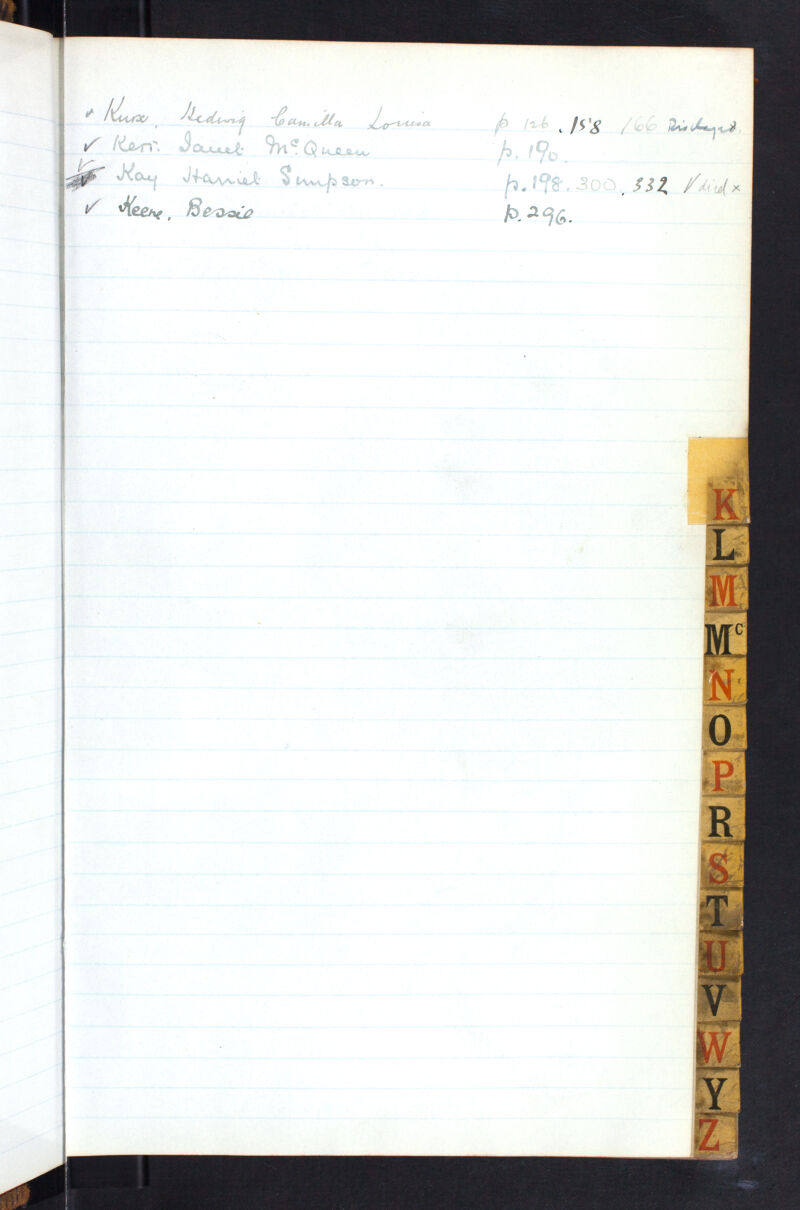 ✓ Knox, Hedwig Camilla Louisa p 126 . 158 166 Discharged.
✓ Kerr. Janet McQueen p. 190.
✓ Kay Harriet Simpson. p. 198. 300. 332 ✓ died x
✓ Keene, Bessie p. 296.
K
L
M
Mc
N
O
P
R
S
T
U
V
W
Y
Z